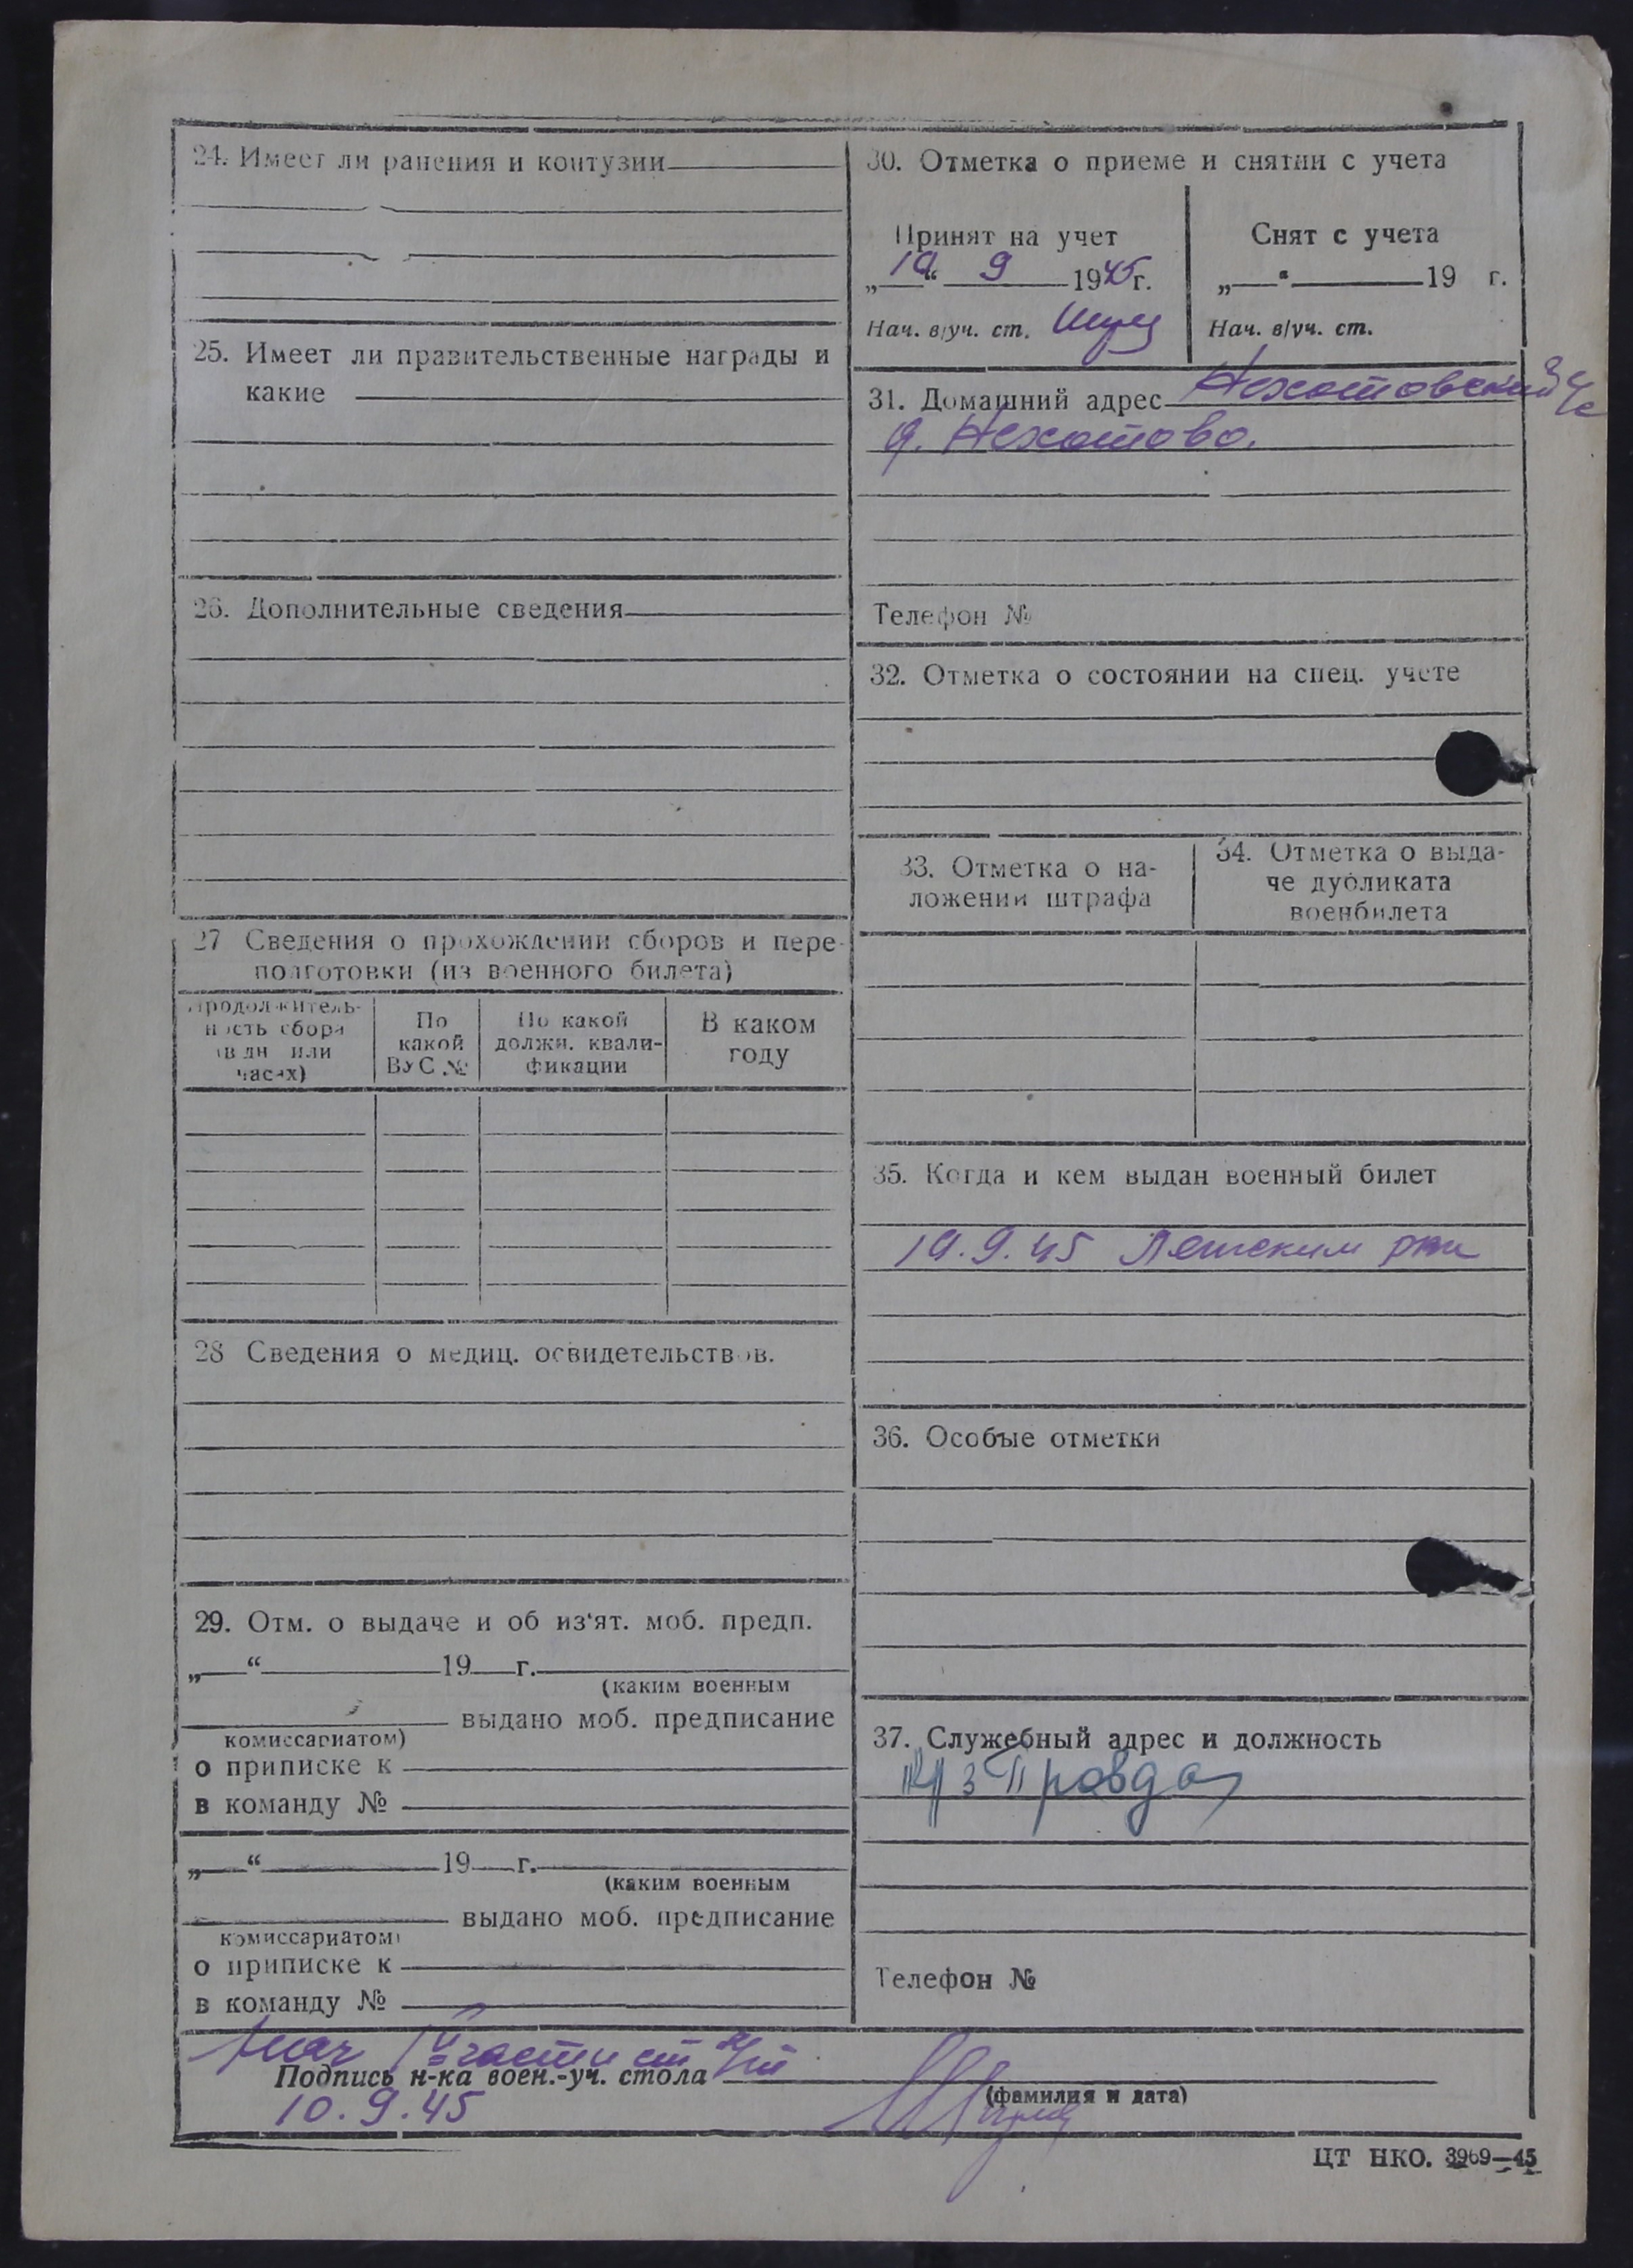 24. Имеет ли ранения и контузии
25. Имеет ли правительственные награды и
какие
26. Дополнительные сведения
27 Сведения о прохождении сборов и пере-
подготовки (из военного билета)
Продолжитель-
ность сбора
(в дн или
часах)
По
какой
ВУС №
По какой
должн. квали-
фикации
В каком
году
28 Сведения о медиц. освидетельствов.
29. Отм. о выдаче и об из'ят. моб. предп.
„ “ 19 г.
(каким военным
выдано моб. предписание
комиссариатом)
о приписке к
в команду №
„ “ 19 г.
(каким военным
выдано моб. предписание
комиссариатом)
о приписке к
в команду №
30. Отметка о приеме и снятии с учета
Принят на учет
„10“ 9 1945 г.
Нач. в/уч. ст.
Снят с учета
„ “ 19 г.
Нач. в/уч. ст.
31. Домашний адрес Нехотовский с/с
д. Нехотово.
Телефон №
32. Отметка о состоянии на спец. учете
33. Отметка о на-
ложении штрафа
34. Отметка о выда-
че дубликата
военбилета
35. Когда и кем выдан военный билет
10.9.45
36. Особые отметки
37. Служебный адрес и должность
к/з Правда
Телефон №
нач части
Подпись н-ка воен.-уч. стола
(фамилия и дата)
10.9.45
ЦТ НКО. 3969—45